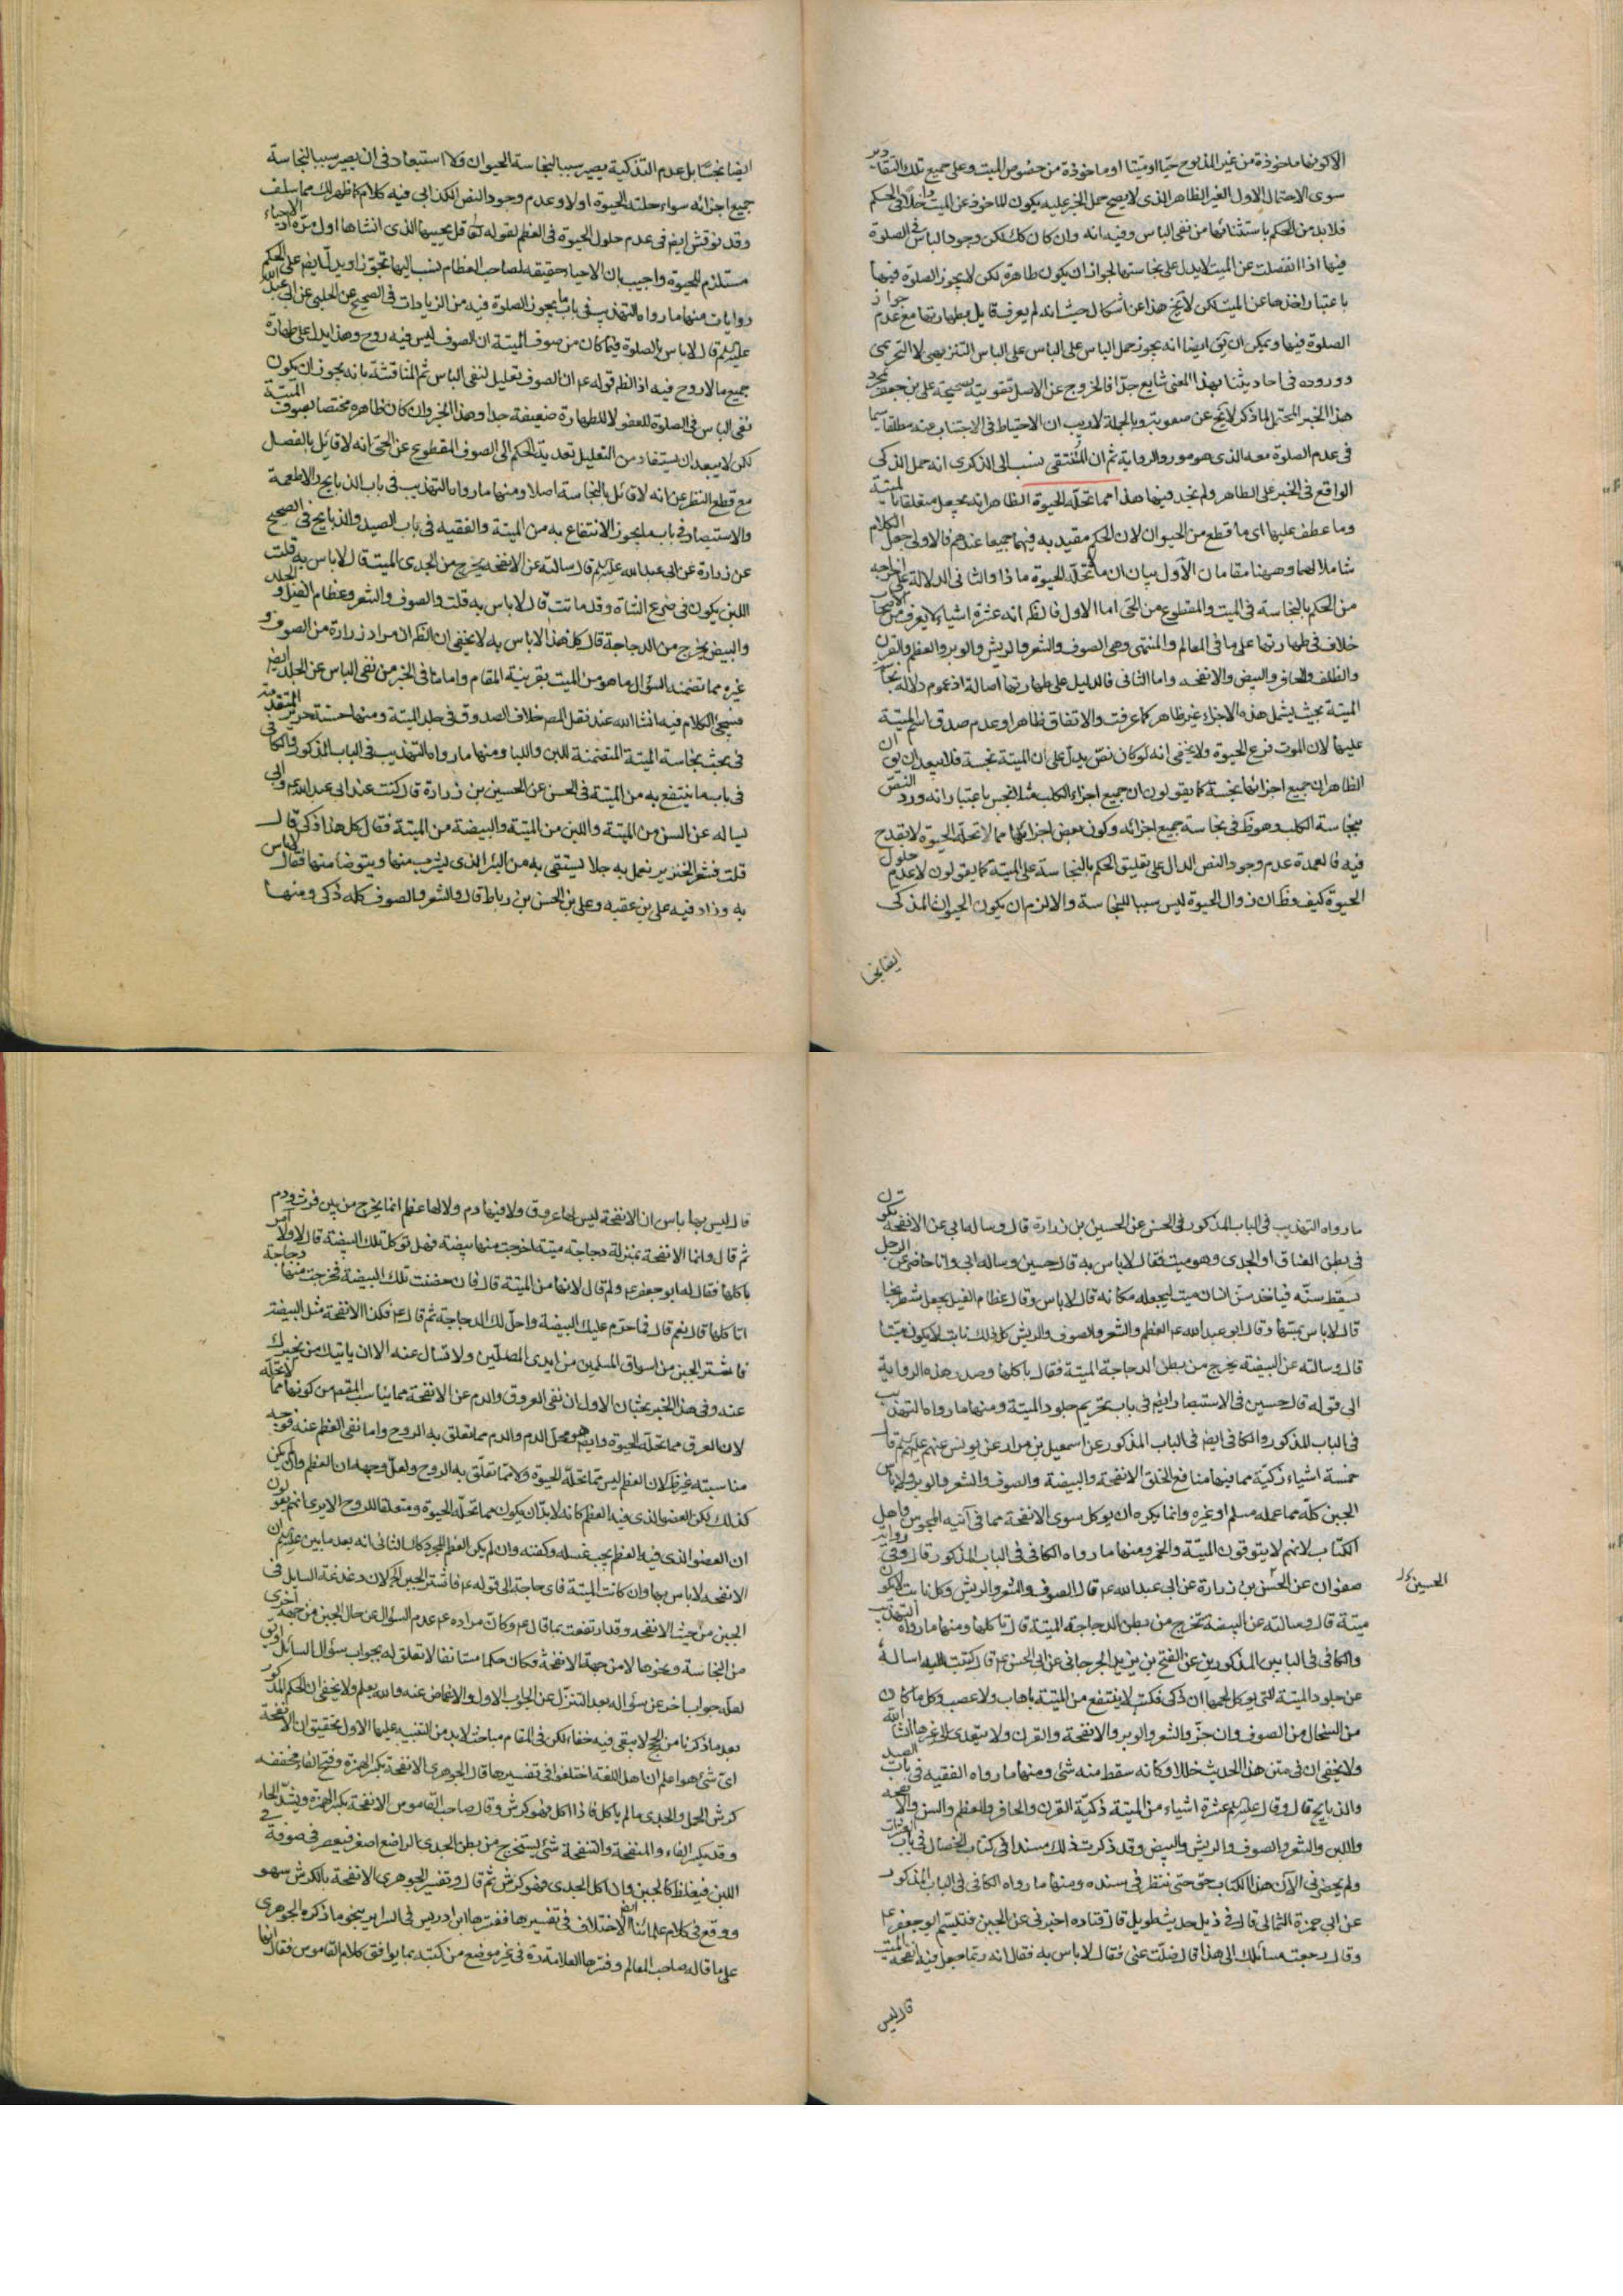 الا كونها ماخوذة من غير المذبوح حيّا او ميّتا او ماخوذة من خصوص الميت وعلى جميع تلك التقادير
سوى الاحتمال الاول الغير الظاهر الذى لا يصح حمل الخبر عليه يكون للماخوذ عن الميت دخلا فى الحكم
فلا بد من الحكم باستثنائها من نفى الباس وفيه انه وان كان كك لكن وجود الباس فى الصلوة
فيها اذا انفصلت عن الميت لا يدل على نجاستها لجواز ان يكون طاهرة لكن لا يجوز الصلوة فيها
باعتبار اخذها عن الميت لكن لا يخ هذا عن اشكال حيث انه لم يعرف قايل بطهارتها مع عدم جواز
الصلوة فيها ويمكن ان يق ايضا انه يجوز حمل الباس على الباس على الباس التنزيهى لا التحريمى
ووروده فى احاديثنا بهذا المعنى شايع جدّا فالخروج عن الاصل بتقوية صحيحة على بن جعفر بمجرد
هذا الخبر المحتمل لما ذكر لا يخ عن صعوبة وبالجملة لا ريب ان الاحتياط فى الاجتناب عنه مطلقا سيما
فى عدم الصلوة معه الذى هو مورد الرواية ثم ان المنتقى نسب الى الذكرى انه حمل الذكى
الواقع فى الخبر على الطاهر ولم نجد فيها هذا مما تحلّه الحيوة الظاهر انه يجعل متعلقا بالميتة
وما عطف عليها اى ما قطع من الحيوان لان الحكم مقيد به فيهما جميعا عندهم فالاولى جعل الكلام
شاملا لهما وههنا مقامان الاول بيان ان ما لا تحلّه الحيوة ما ذا والثانى الدلالة على اخراجه
من الحكم بالنجاسة فى الميت والمقطوع من الحى اما الاول فالظم انه عشرة اشياء لا يعرف من الاصحاب
خلاف فى طهارتها على ما فى المعالم والمنتهى وهى الصوف والشعر والريش والوبر والعظم والقرن
والظلف والحافر والبيض والانفحه واما الثانى فالدليل على طهارتها اصالة اذ عموم دلالة نجاسة
الميتة بحيث يشمل هذه الاجزاء غير ظاهر كما عرفت والاتفاق ظاهرا وعدم صدق اسم الميتة
عليها لان الموت فرع الحيوة ولا يخفى انه لو كان نصّ يدلّ على ان الميتة نجسة فلا يبعد ان يق ان
الظاهر ان جميع اجزائها نجسة كما يقولون ان جميع اجزاء الكلب مثلا نجس باعتبار انه ورد النص
بنجاسة الكلب وهو ظ فى نجاسة جميع اجزائه وكون بعض اجزائها مما لا تحلّه الحيوة لا يقدح
فيه فالعمدة عدم وجود النص الدال على تعليق الحكم بالنجاسة على الميتة كما يقولون لا عدم حلول
الحيوة كيف وظ ان زوال الحيوة ليس سببا للنجاسة والا لزم ان يكون الحيوان المذكى
ايضا نجسا
ايضا نجسًا بل عدم التذكية يصير سببا لنجاسة الحيوان فلا استبعاد فى ان يصير سببا لنجاسة
جميع اجزائه سواء حلته الحيوة اولا وعدم وجود النص لكذا بى فيه كلام كما ظهر لك مما سلف
وقد نوقش ايضا فى عدم حلول الحيوة فى العظم لقوله تعالى قل يحييها الذى انشاها اول مرّة اذ الاحياء
مستلزم للحيوة واجيب بان الاحياء حقيقه لصاحب العظام نسب اليها تجوّزا ويدلّ ايضا على الحكم
روايات منها ما رواه التهذيب فى باب ما يجوز الصلوة فيه من الزيادات فى الصحيح عن الحلبى عن ابى عبد الله
عليه السلام قال لا باس بالصلوة فيما كان من صوف الميتة ان الصوف ليس فيه روح وهذا يدل على طهارة
جميع ما لا روح فيه اذ الظم قوله عم ان الصوف تعليل لنفى الباس ثم المناقشة بانه يجوز ان يكون
نفى الباس فى الصلوة للعفو لا للطهارة ضعيفة جدا وهذا الخبر وان كان ظاهره مختصا بصوف الميتة
لكن لا يبعد ان يستفاد من التعليل تعدية الحكم الى الصوف المقطوع عن الحى انه لا قائل بالفصل
مع قطع النظر عن انه لا قائل بالنجاسة اصلا ومنها ما رواه التهذيب فى باب الذبايح والاطعمة
والاستبصار فى باب ما يجوز الانتفاع به من الميتة والفقيه فى باب الصيد والذبايح فى الصحيح
عن زرارة عن ابى عبد الله عليه السلام قال سالته عن الانفحه يخرج من الجدى الميت قال لا باس به قلت
اللبن يكون فى ضرع الشاة وقد ماتت قال لا باس به قلت والصوف والشعر وعظام الفيل والجلد
والبيض يخرج من الدجاجة قال كل هذا لا باس به لا يخفى ان الظم ان مراد زرارة من الصوف و
غيره مما تضمنه السؤال ما هو من الميت بقرينة المقام واما ما فى الخبر من نفى الباس عن الجلد ايضا
فسيجئ الكلام فيه انشاء الله عند نقل المصم خلاف الصدوق فى جلد الميتة ومنها حسنة حريز المتقدمة
فى بحث نجاسة الميتة المتضمنة للبن واللبا ومنها ما رواه التهذيب فى الباب المذكور والكافى
فى باب ما ينتفع به من الميتة فى الحسن عن الحسين بن زرارة قال كنت عند ابى عبد الله عم وابى
يساله عن السن من الميتة واللبن من الميتة والبيضة من الميتة فقال كل هذا ذكى قال
قلت فشعر الخنزير نعمل به حبلا يستقى به من البئر الذى يشرب منها ويتوضا منها فقال لا باس
به وزاد فيه على بن عقبه وعلى بن الحسن بن رباط قال والشعر والصوف كله ذكى ومنها
ما رواه التهذيب فى الباب المذكور فى الحسن عن الحسين بن زرارة قال وساله ابى عن الانفحة تكون
فى بطن العناق او الجدى وهو ميت فقال لا باس به قال حسين وساله ابى وانا حاضر عن الرجل
يسقط سنّه فياخذ سنّ انسان ميت ليجعله مكانه قال لا باس وقال عظام الفيل يجعل شطرنجا
قال لا باس بمسّها وقال ابو عبد الله عم العظم والشعر والصوف والريش كل ذلك نابت لا يكون ميتا
قال وسالته عن البيضة يخرج من بطن الدجاجة الميتة فقال ياكلها وصدر هذه الرواية
الى قوله قال حسين فى الاستبصار ايضا فى باب تحريم جلود الميتة ومنها ما رواه التهذيب
فى الباب المذكور والكافى ايضا فى الباب المذكور عن اسمعيل بن مرار عن يونس عنهم عليهم السلام قال
خمسة اشياء ذكيّة مما فيها منافع الخلق الانفحة والبيضة والصوف والشعر والوبر ولا باس
الجبن كلّه مما عمله مسلم او غيره وانما يكره ان يوكل سوى الانفحة مما فى آنية المجوس واهل
الكتاب لانهم لا يتوقون الميتة والخمر ومنها ما رواه الكافى فى الباب المذكور قال وفى رواية
صفوان عن الحسن بن زرارة عن ابى عبد الله عم قال الصوف والشعر والريش وكل نابت لا يكون
الحسين كا
ميتة قال وسالته عن البيضة تخرج من بطن الدجاجة الميتة قال تاكلها ومنها ما رواه التهذيب
والكافى فى البابين المذكورين عن الفتح بن يزيد الجرجانى عن ابى الحسن عم قال كتبت اليه اساله
عن جلود الميتة التى يوكل لحمها ان ذكى فكتب لا ينتفع من الميتة باهاب ولا عصب وكل ما كان
من السخال من الصوف وان جزّ والشعر والوبر والانفحة والقرن ولا يتعدى الى غيرها انشاء الله
ولا يخفى ان فى متن هذا الحديث خللا وكانه سقط منه شئ ومنها ما رواه الفقيه فى باب الصيد
والذبايح قال وقال عليه السلام عشرة اشياء من الميتة ذكيّة القرن والحافر والعظم والسن والانفحه
واللبن والشعر والصوف والريش والبيض وقد ذكرت ذلك مسندا فى كتاب الخصال فى باب العشرات
ولم يحضرنى الآن هذا الكتاب حتى ننظر فى سنده ومنها ما رواه الكافى فى الباب المذكور
عن ابى حمزة الثمالى قال فى ذيل حديث طويل قال قتاده اخبرنى عن الجبن فتبسّم ابو جعفر عم
وقال رجعت مسائلك الى هذا قال ضلّت عنى فقال لا باس به فقال انه ربّما جعل فيه انفحة الميت
قال ليس
قال ليس بها باس ان الانفحة ليس لها عروق ولا فيها دم ولا لها عظم انما يخرج من بين فرث ودم
ثم قال وانما الانفحة بمنزلة دجاجة ميتة اخرجت منها بيضة فهل توكل تلك البيضة قال لا ولا آمر
باكلها فقال له ابو جعفر عم ولم قال لانها من الميتة قال فان حضنت تلك البيضة فخرجت منها دجاجة
اتاكلها قال نعم قال فما حرّم عليك البيضة واحلّ لك الدجاجة ثم قال عم فكذا الانفحة مثل البيضة
فاشتر الجبن من اسواق المسلمين من ايدى المصلّين ولا تسال عنه الا ان ياتيك من يخبرك
عنه وفى هذا الخبر بحثان الاول ان نفى العروق والدم عن الانفحة مما يناسب المقصم من كونها مما لا تحلّه
لان العرق مما تحلّه الحيوة وايضا هو محل الدم والدم مما تعلق به الروح واما نفى العظم عنه فوجه
مناسبته غير ظ لان العظم ليس مما تحلّه الحيوة ولا مما تعلّق به الروح ولعلّ وجهه ان العظم وان لم يكن
كذلك لكن العضو الذى فيه العظم كانه لا بدّ ان يكون مما تحلّه الحيوة ومتعلقا للروح الا يرى انهم يقولون
ان العضو الذى فيه العظم يجب غسله وكفنه وان لم يكن العظم المجرد كك الثانى انه بعد ما بين عليه السلام ان
الانفحه لا باس بها وان كانت الميتة فاى حاجة الى قوله عم فاشتر الجبن لان دغدغة السايل فى
الجبن من حيث الانفحه وقد ارتفعت بما قال عم وكانّ مراده عم عدم السؤال عن حال الجبن من جهة اخرى
من النجاسة ونحوها لا من جهة الانفحة فكان حكما مستانفا لا تعلق له بجواب سؤال السائل او يق
لعله جواب اخر عن سؤاله بعد التنزّل عن الجواب الاول والاغماض عنه والله يعلم ولا يخفى ان الحكم المذكور
بعد ما ذكرنا من الحجج لا يبقى فيه خفاء لكن فى المقام مباحث لا بد من التنبيه عليها الاول تحقيق ان الانفحة
اى شئ هو اعلم ان اهل اللغة اختلفوا فى تفسيرها قال الجوهرى الانفحة بكسر الهمزة وفتح الفاء مخففه
كرش الحمل والجدى ما لم ياكل فاذا اكل فهو كرش وقال صاحب القاموس الانفحة بكسر الهمزة ويشدّ الحاء
وقد يكسر الفاء والمنفحة والتنفحة شئ يستخرج من بطن الجدى الراضع اصفر فيعصر فى صوفة فى
اللبن فيغلظ كالجبن واذا اكل الجدى فهو كرش ثم قال وتفسير الجوهرى الانفحة بالكرش سهو
ووقع فى كلام علمائنا ايضا الاختلاف فى تفسيرها ففسرها ابن ادريس فى السراير بنحو ما ذكره الجوهرى
على ما قاله صاحب المعالم وفسرها العلامة ره فى غير موضع من كتبه بما يوافق كلام القاموس فقال انها